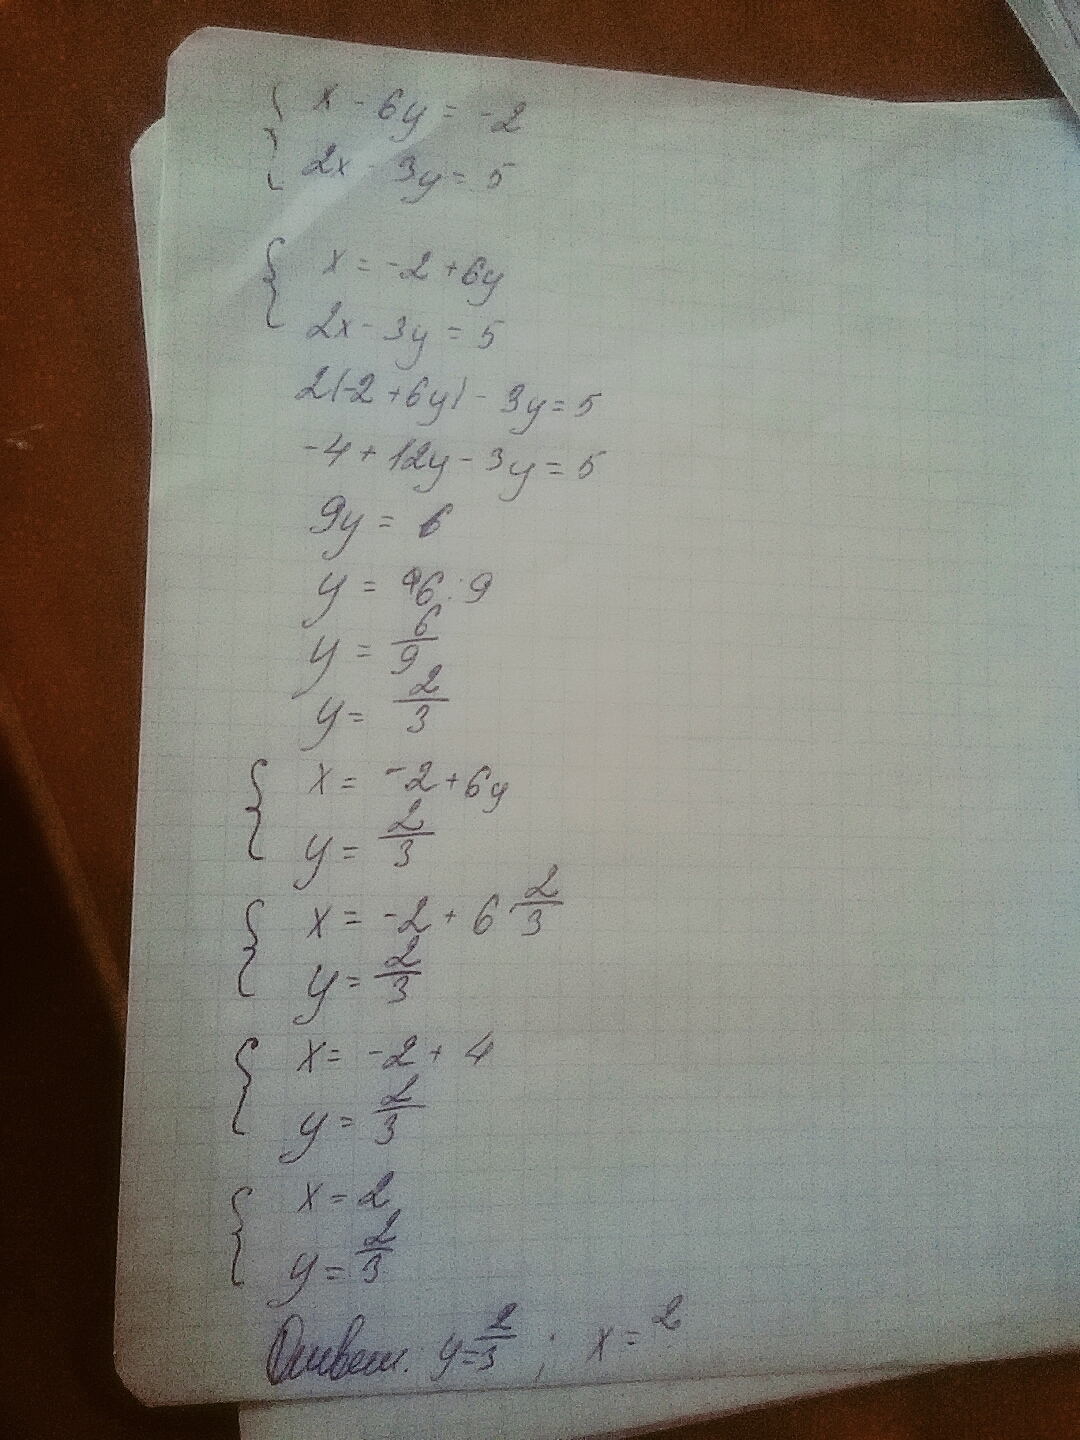 x - 6y = -2
2x - 3y = 5
x = -2 + 6y
2x - 3y = 5
2(-2 + 6y) - 3y = 5
-4 + 12y - 3y = 5
9y = 6
y = 6 : 9
y = 6/9
y = 2/3
x = -2 + 6y
y = 2/3
x = -2 + 6 · 2/3
y = 2/3
x = -2 + 4
y = 2/3
x = 2
y = 2/3
Ответ: y = 2/3 ; x = 2